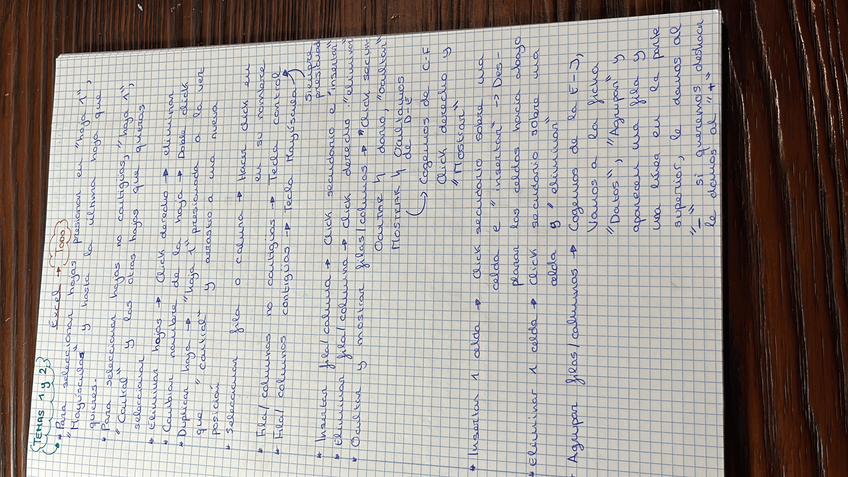 TEMAS 1 y 2
Excel → Todo
* Para seleccionar hojas presionar en "hoja 1",
"Mayúsculas" y hasta la última hoja que
quieres.
* Para seleccionar hojas no contiguas, "hoja 1",
"Control" y las otras hojas que quieras
seleccionar
* Eliminar hojas → Click derecho → eliminar
* Cambiar nombre de la hoja → Doble click
* Duplicar hoja → "hoja 1" presionada a la vez
que "control" y arrastro a una nueva
posición
* Seleccionar fila o columna → Hacer click en
en su nombre
* Fila/columnas no contiguas → Tecla control
* Fila/columnas contiguas → Tecla Mayúsculas
siempre
presionado
* Insertar fila/columna → Click secundario e "insertar"
* Eliminar fila/columna → click derecho "eliminar"
* Ocultar y mostrar filas/columnas → "Click secun-
Ocultar y dario, "ocultar"
Mostrar y Ocultamos
de D-E
→ cogemos de C-F
Click derecho y
"Mostrar"
* Insertar 1 celda → Click secundario sobre una
celda e "insertar" → Des-
plazar las celdas hacia abajo
* Eliminar 1 celda → Click secundario sobre una
celda y "eliminar"
* Agrupar filas/columnas → Cogemos de la E-J,
Vamos a la ficha
"Datos", "Agrupar" y
aparecen una fila y
una línea en la parte
superior, le damos al
"-" si queremos deshacer
le damos al "+"